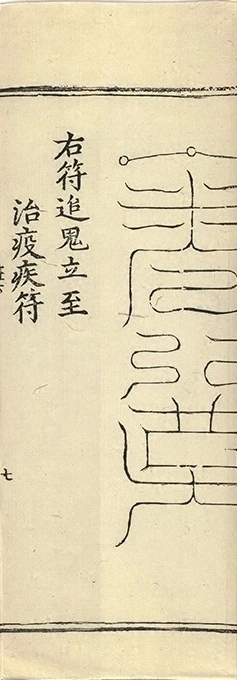 右符追鬼立至
治疫疾符
七